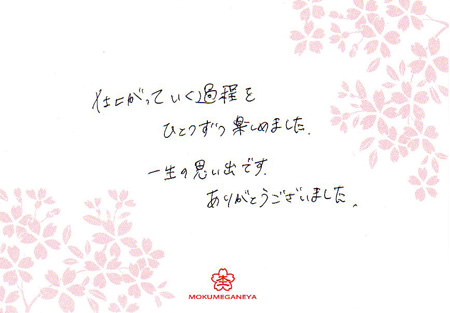 仕上がっていく過程を
ひとつずつ楽しめました.
一生の思い出です.
ありがとうございました.
MOKUMEGANEYA